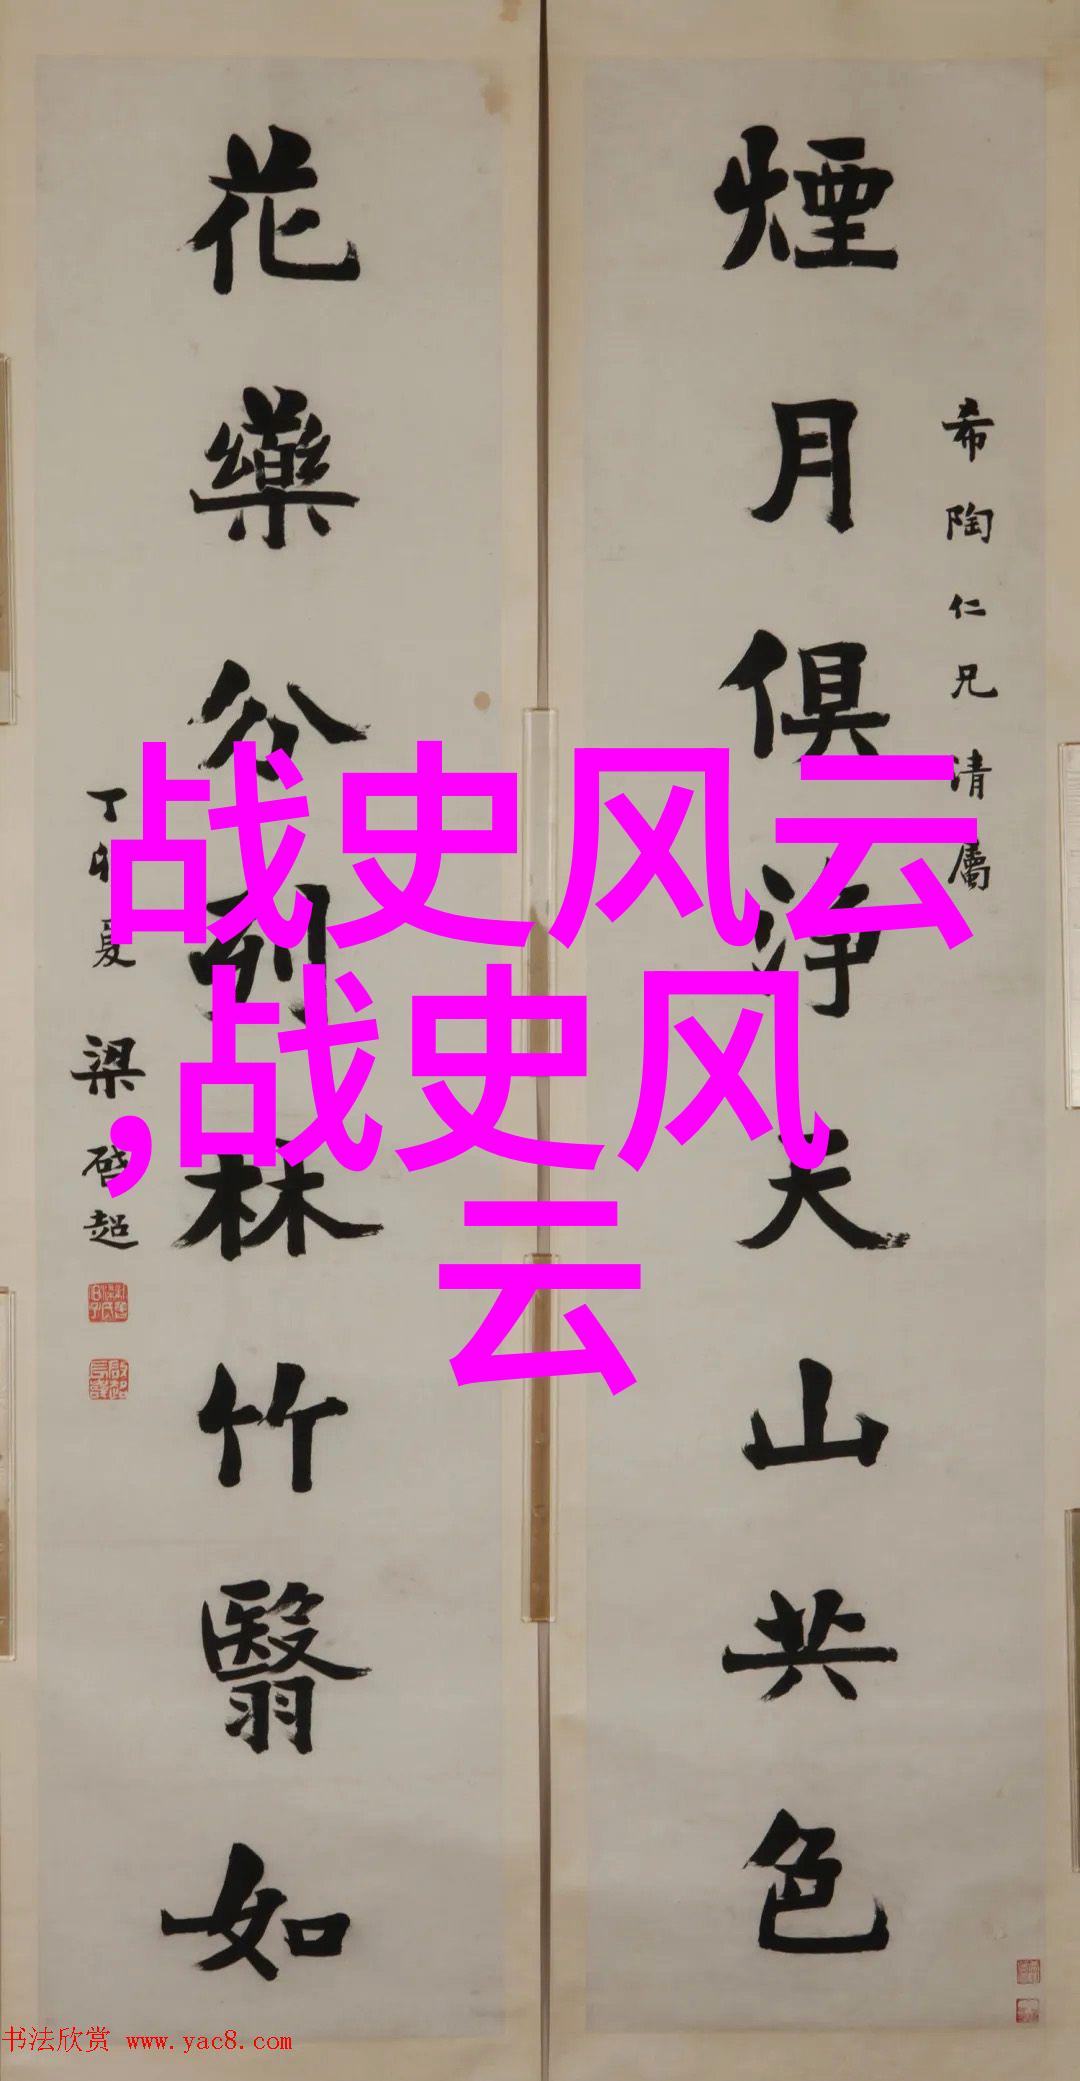 希陶仁兄清屬
煙月俱淨天山共色
花藥分列林竹翳如
丁卯夏 梁啓超
战史风云
,战史风
云
书法欣赏 www.yac8.com